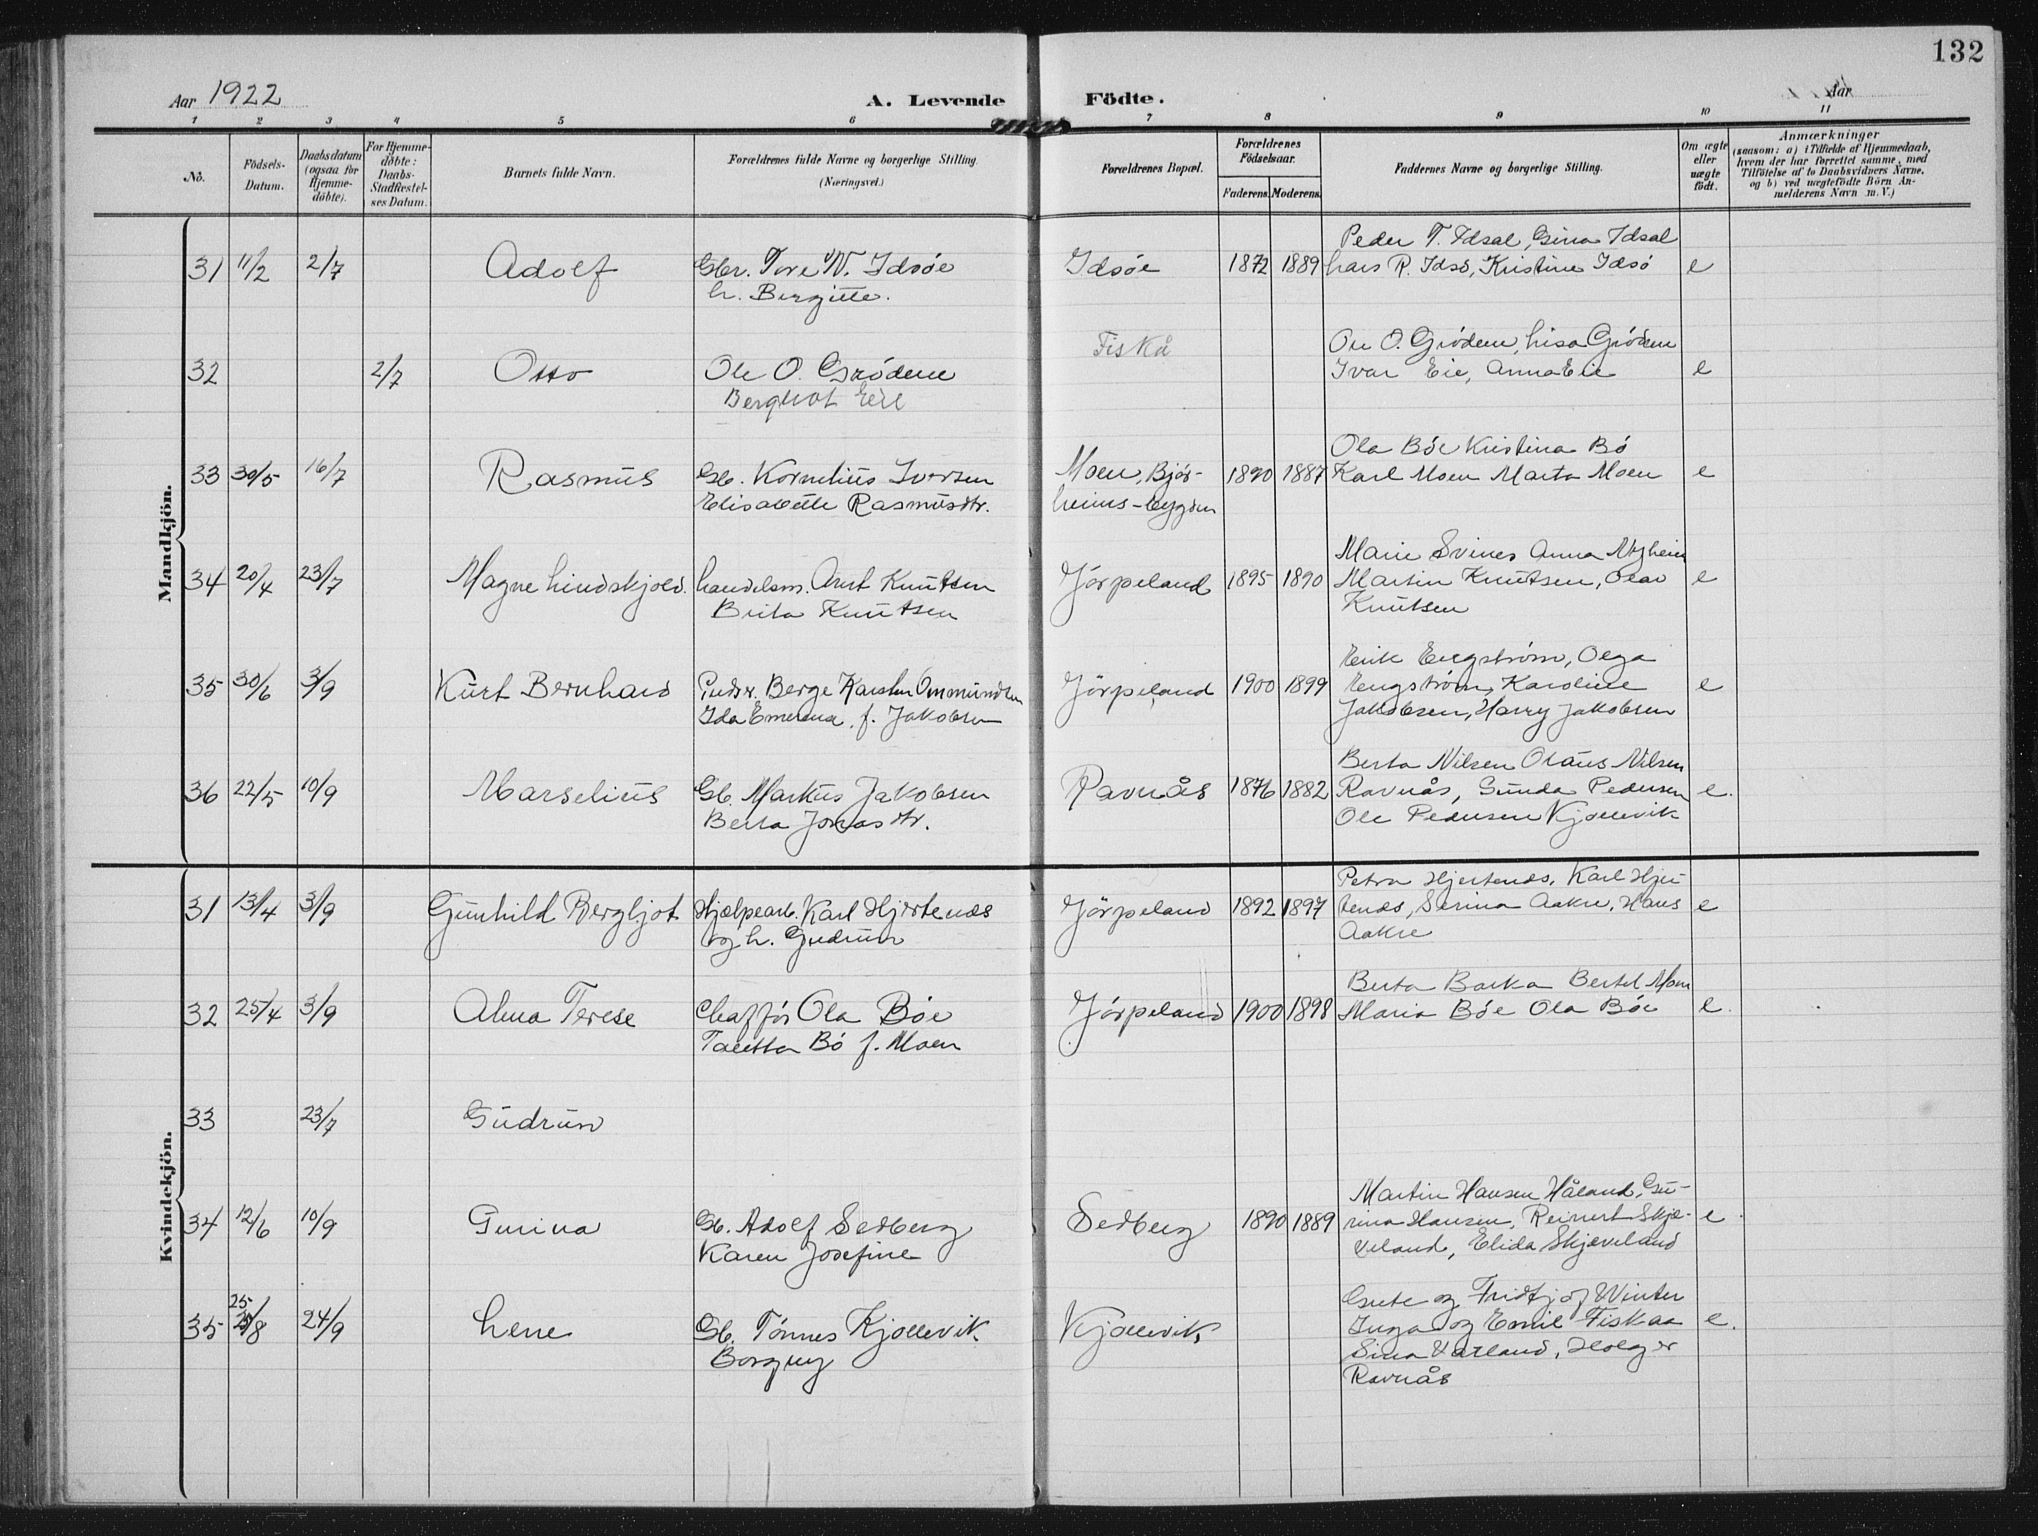 132
Aar 1922
A. Levende Födte.
Aar
1 2 3 4 5 6 7 8 9 10 11
No.
Födsels-
Datum.
Daabsdatum
(ogsaa for
Hjemme-
döbte).
For Hjemme-
döbte:
Daabs-
Stadfæstel-
ses Datum.
Barnets fulde Navn.
Forældrenes fulde Navne og borgerlige Stilling.
(Næringsvei.)
Forældrenes Bopæl.
Forældrenes
Födselsaar.
Faderens. Moderens.
Faddernes Navne og borgerlige Stilling.
Om ægte
eller
uægte
födt.
Anmærkninger
(saasom: a) i Tilfælde af Hjemmedaab,
hvem der har forrettet samme, med
Tilföielse af to Daabsvidners Navne,
og b) ved uægtefödte Börn An-
melderens Navn m. V.)
Mandkjön.
31 11/2 2/7 Adolf Gbr. Tore W. Idsöe
h. Bergitte.
Idsöe 1872 1889
Peder T. Idsal, Gina Idsal
Lars R. Idsö, Kristine Idsö e
32 2/7 Otto Ole O. Grödem
Bergliot Eie
Fiskå
Ole O. Grödem, Lisa Grödem
Ivar Eie, Anna Eie e
33 30/5 16/7 Rasmus Gb. Kornelius Iversen
Elisabeth Rasmusdtr.
Moen, Björ-
heims-bygden 1890 1887
Ola Böe Kristina Bö
Karl Moen Marta Moen e
34 20/4 23/7 Magne Lindskjold. Handelsm. Arnt Knutsen
Brita Knutsen
Jörpeland 1895 1890
Marie Svines Anna
Martin Knutsen, Olav
Knutsen e
35 30/6 3/9 Kurt Bernhard Berge Karsten Ommundsen
Ida Emerense, f. Jakobsen
Jörpeland 1900 1899
Erik Engström, Olga
Engström, Karoline
Jakobsen, Harry Jakobsen e
36 22/5 10/9 Marselius Gb. Markus Jakobsen
Berta Jonasdtr.
Ravnås 1876 1882
Berta Nilsen Olaus Nilsen
Ravnås, Gunda Pedersen
Ole Pedersen Kjöllevik e.
Kvindekjön.
31 13/4 3/9 Gunhild Bergljot Hjælpearb. Karl Hjertenäs
og h. Gudrun
Jörpeland 1892 1897
Petra Hjertenäs, Karl Hjer-
tenäs, Serina Aakre, Hans
Aakre e
32 25/4 3/9 Alma Terese Chafför Ola Böe
Taletta Bö f. Moen
Jörpeland 1900 1898
Berta Barka Bertel Moen
Maria Böe Ola Böe e.
33 23/7 Gudrun
34 12/6 10/9 Gurina Gb. Adolf Sedberg
Karen Josefine
Sedberg 1890 1889
Martin Hansen Håland, Gu-
rina Hansen, Reinert Skjæ-
veland, Elida Skjæveland e
35 25/8 24/9 Lene Gb. Tönnes Kjöllevik
Borgny
Kjöllevik
Grete og Fridtjof Winter
Inga og Emil Fiskaa
Sina Varland, Holger
Ravnås e.